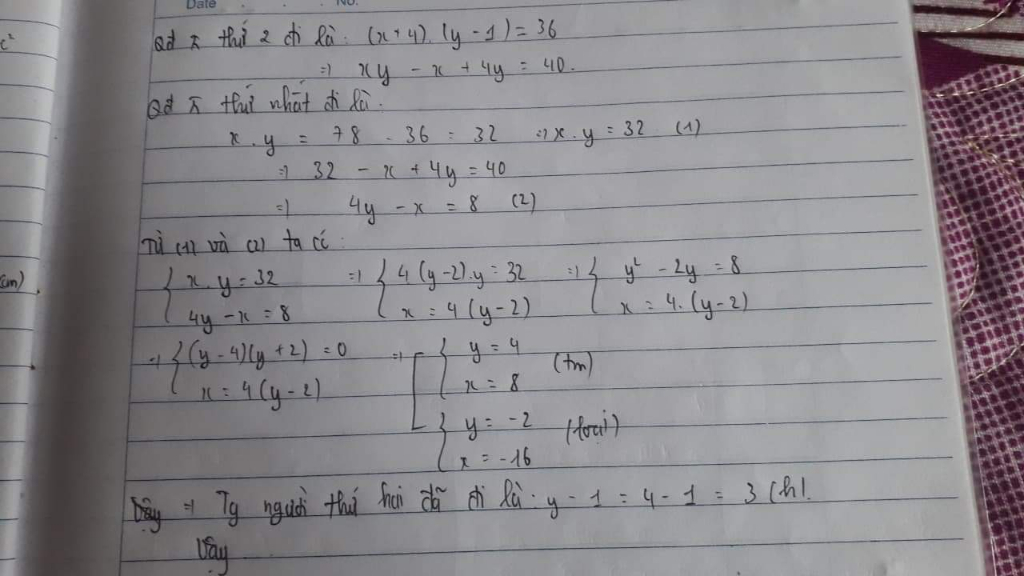 Date No.
Qđ x thứ 2 đi là: (x+4).(y-1)=36
=> xy - x + 4y = 40.
Qđ x thứ nhất đi là:
x.y = 78 - 36 = 32 => x.y = 32 (1)
=> 32 - x + 4y = 40
=> 4y - x = 8 (2)
Từ (1) và (2) ta có:
x.y = 32 => 4(y-2).y = 32 => y² - 2y = 8
4y - x = 8 x = 4(y-2) x = 4.(y-2)
=> (y-4)(y+2) = 0 => y = 4
x = 4(y-2) x = 8 (tm)
y = -2
x = -16 (loại)
Vậy => Tg người thứ hai đã đi là: y - 1 = 4 - 1 = 3 (h).
Vậy